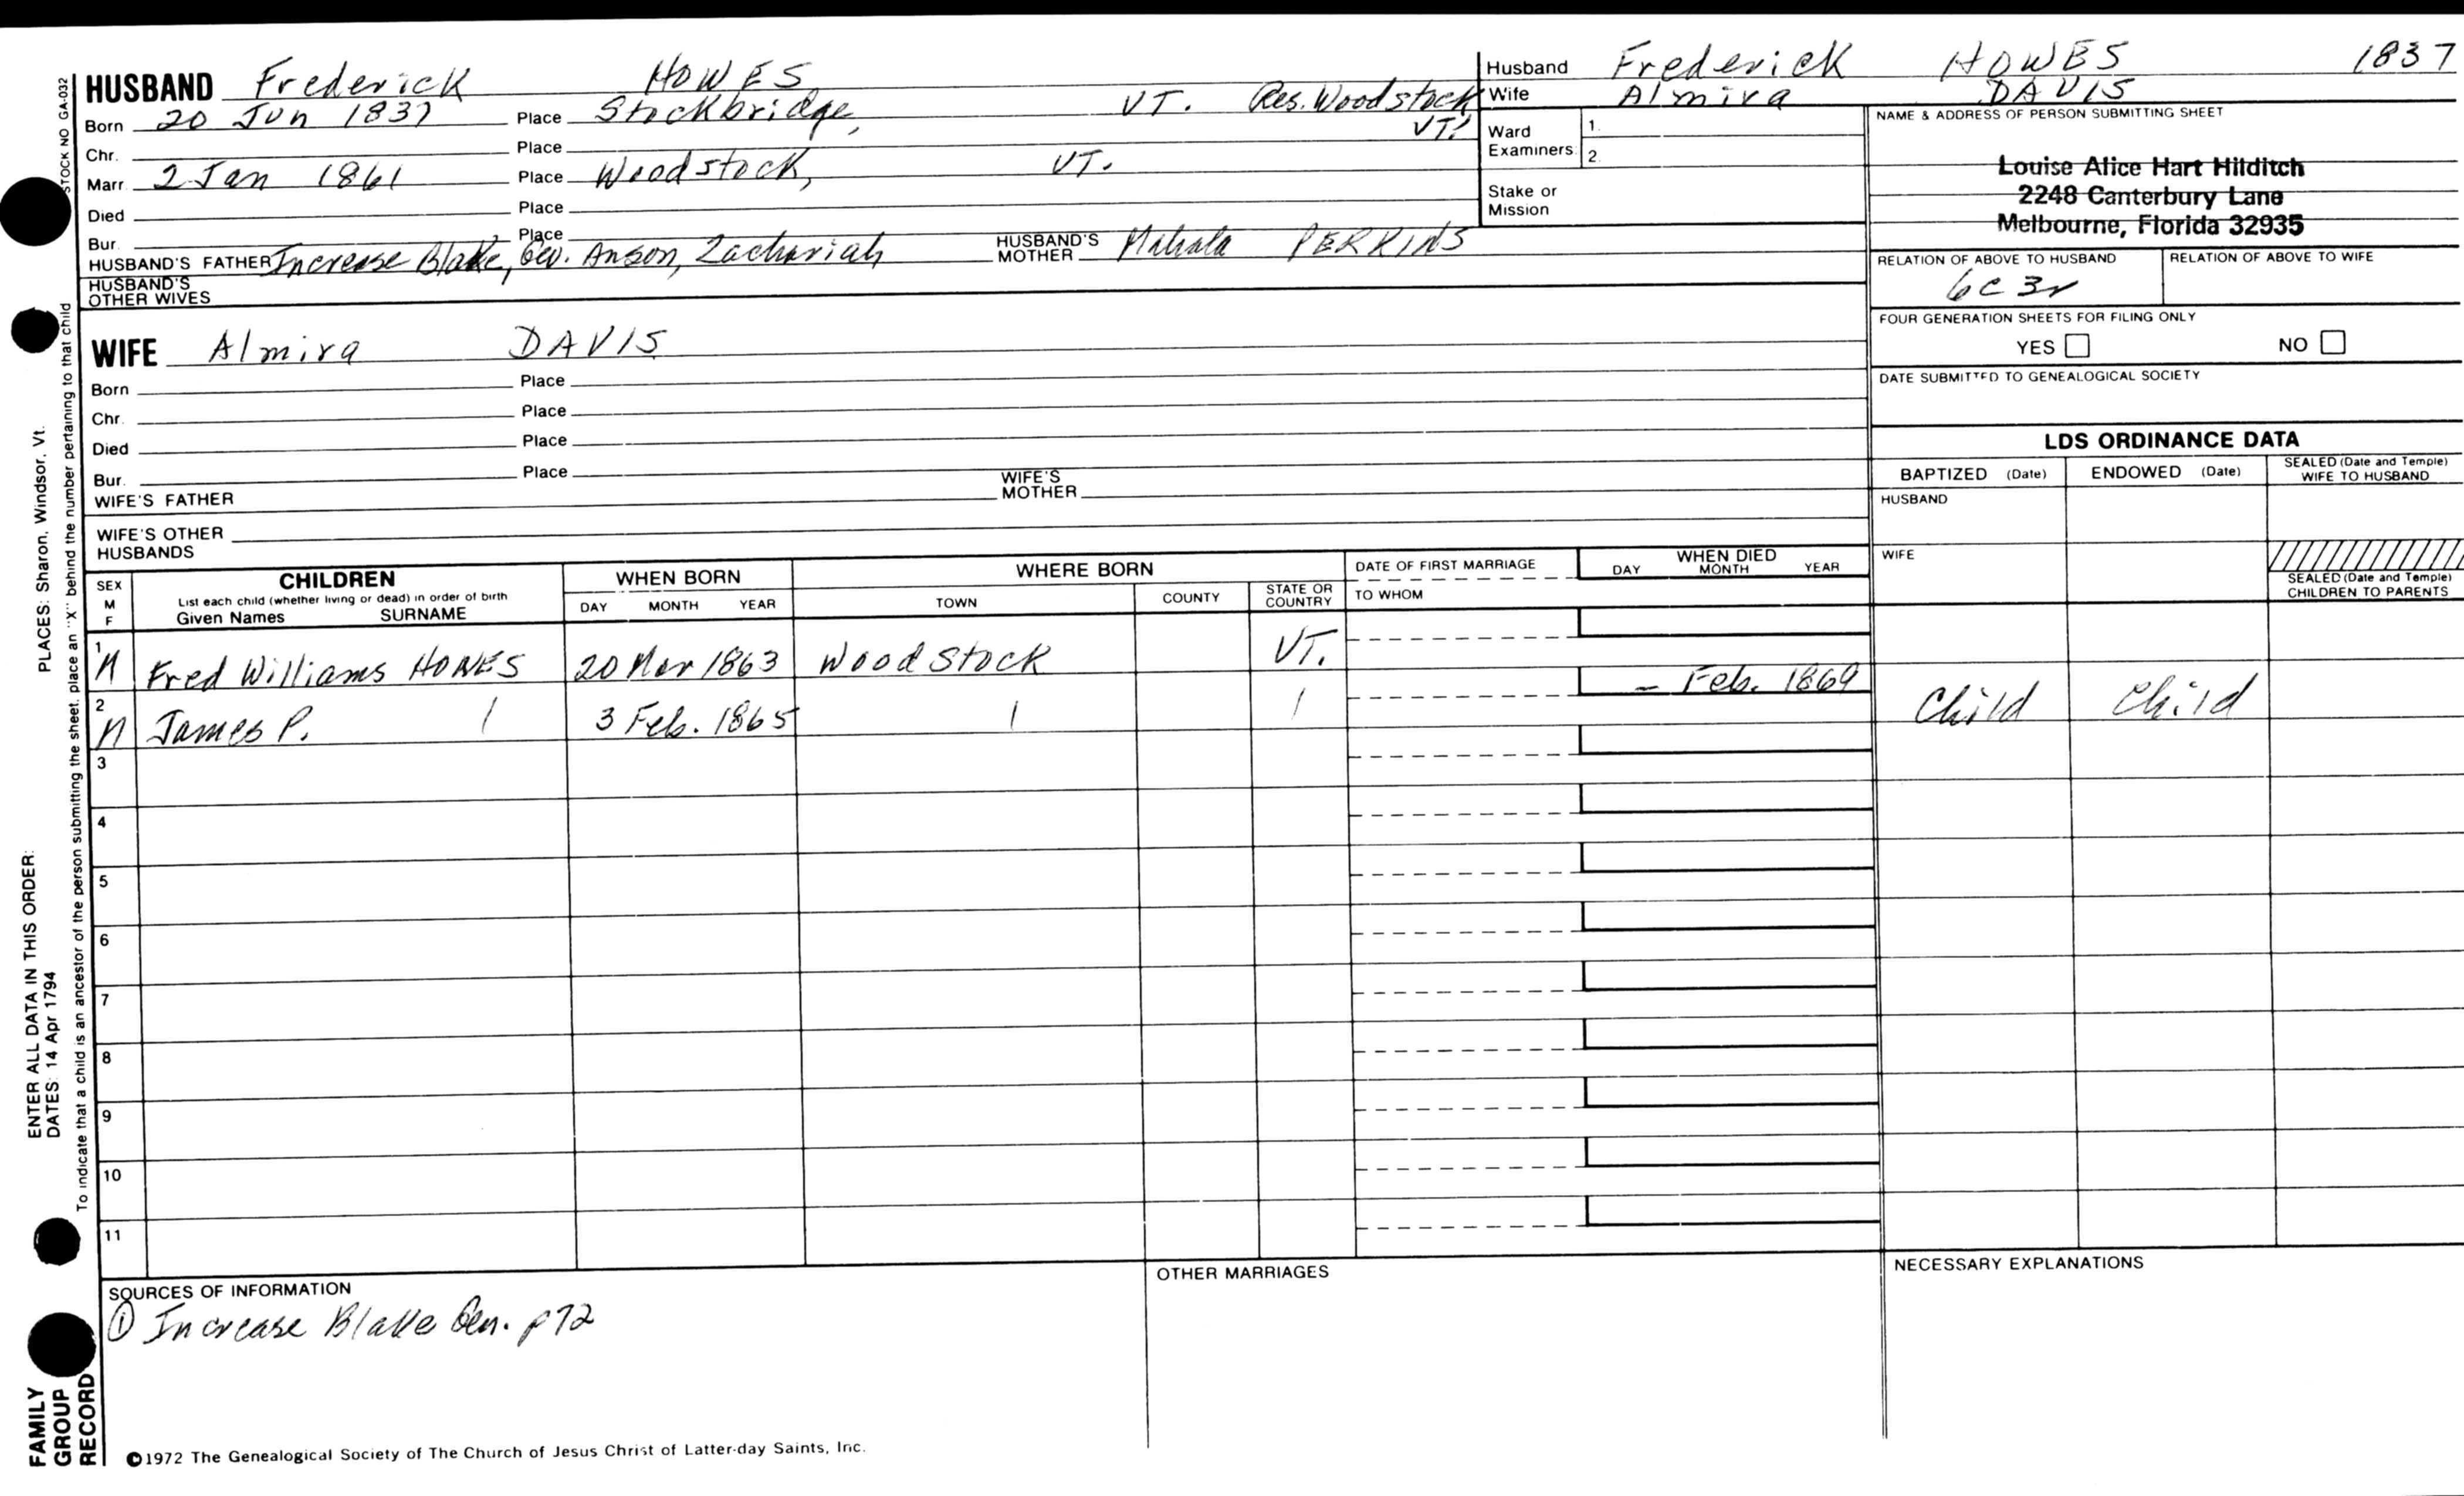 HUSBAND Frederick HOWES
Born 20 Jun 1837 Place Stockbridge, VT. Res. Woodstock VT.
Chr. Place
Marr. 2 Jan 1861 Place Woodstock, VT.
Died Place
Bur. Place
HUSBAND'S FATHER Increase Blake, Geo. Anson, Zachariah HUSBAND'S MOTHER Mahala PERKINS
HUSBAND'S OTHER WIVES
WIFE Almira DAVIS
Born Place
Chr. Place
Died Place
Bur. Place
WIFE'S FATHER WIFE'S MOTHER
WIFE'S OTHER HUSBANDS
Husband Frederick HOWES 1837
Wife Almira DAVIS
Ward Examiners 1. 2.
Stake or Mission
NAME & ADDRESS OF PERSON SUBMITTING SHEET
Louise Alice Hart Hilditch
2248 Canterbury Lane
Melbourne, Florida 32935
RELATION OF ABOVE TO HUSBAND RELATION OF ABOVE TO WIFE
6C 3r
FOUR GENERATION SHEETS FOR FILING ONLY
YES NO
DATE SUBMITTED TO GENEALOGICAL SOCIETY
LDS ORDINANCE DATA
BAPTIZED (Date) ENDOWED (Date) SEALED (Date and Temple) WIFE TO HUSBAND
HUSBAND
WIFE
SEALED (Date and Temple) CHILDREN TO PARENTS
SEX M F CHILDREN WHEN BORN WHERE BORN DATE OF FIRST MARRIAGE WHEN DIED
List each child (whether living or dead) in order of birth
Given Names SURNAME DAY MONTH YEAR TOWN COUNTY STATE OR COUNTRY TO WHOM DAY MONTH YEAR
1 M Fred Williams HOWES 20 Mar 1863 Woodstock VT.
2 M James P. | 3 Feb. 1865 | | – Feb. 1869 Child Child
3
4
5
6
7
8
9
10
11
SOURCES OF INFORMATION
① Increase Blake Gen. p72
OTHER MARRIAGES
NECESSARY EXPLANATIONS
©1972 The Genealogical Society of The Church of Jesus Christ of Latter-day Saints, Inc.
STOCK NO GA-032
To indicate that a child is an ancestor of the person submitting the sheet, place an "X" behind the number pertaining to that child
ENTER ALL DATA IN THIS ORDER: PLACES: Sharon, Windsor, Vt.
DATES: 14 Apr 1794
FAMILY
GROUP
RECORD